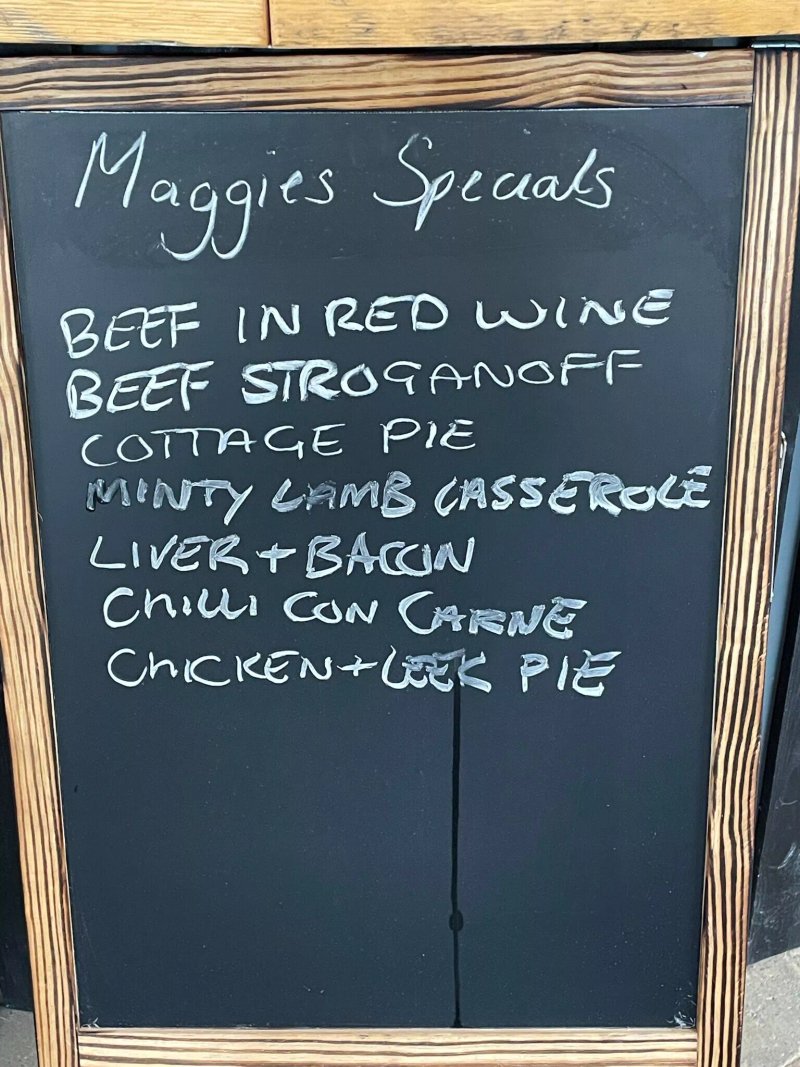 Maggies Specials
BEEF IN RED WINE
BEEF STROGANOFF
COTTAGE PIE
MINTY LAMB CASSEROLE
LIVER + BACON
CHILLI CON CARNE
CHICKEN + LEEK PIE